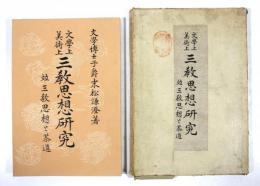 文學博士子爵末松謙澄著
文學上
美術上
三教思想研究
竝三教思想と茶道
文學上
美術上
三教思想研究
竝三教思想と茶道